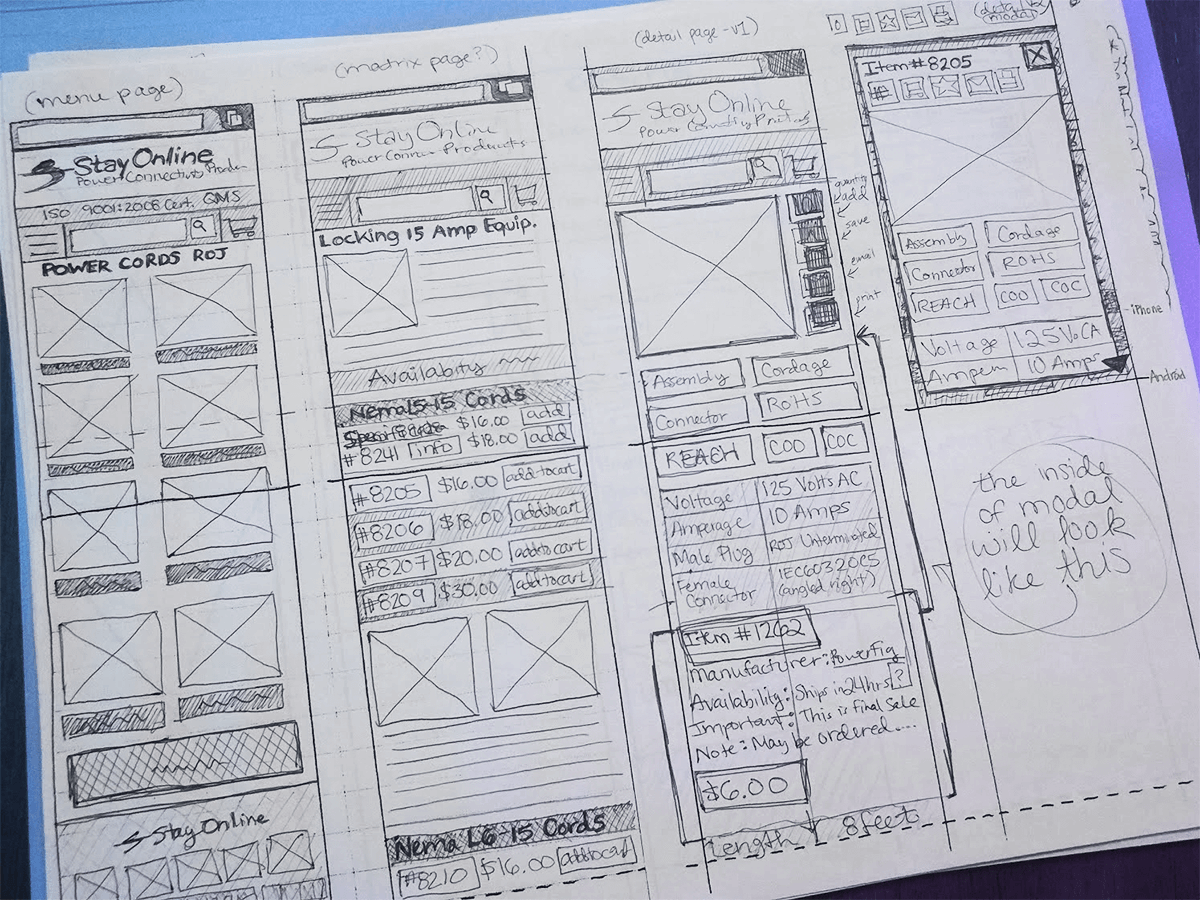 (menu page)
StayOnline
Power Connectivity
ISO 9001:2008 Cert. QMS
POWER CORDS ROJ
StayOnline
(matrix page?)
StayOnline
Products
Locking 15 Amp Equip.
Availability
Nema 5-15 Cords
$16.00 add
#8241 info $18.00 add
#8205 $16.00 add to cart
#8206 $18.00 add to cart
#8207 $20.00 add to cart
#8209 $30.00 add to cart
Nema L6-15 Cords
#8210 $16.00 add to cart
(detail page - v1)
StayOnline
Power
quantity
add
save
email
print
Assembly Cordage
Connector RoHS
REACH COO COC
Voltage 125 Volts AC
Amperage 10 Amps
Male Plug ROJ Unterminated
Female Connector IEC60320C5 (angled right)
Item #1262
manufacturer: Powerfig
Availability: Ships in 24hrs ?
Important: This is final Sale
Note: May be ordered....
$6.00
Length 8feet
(detail v2
modal)
Item# 8205
#
Assembly Cordage
Connector ROHS
REACH COO COC
Voltage 125 Vo
10 Amps
iPhone
Android
the inside
of modal
will look
like this